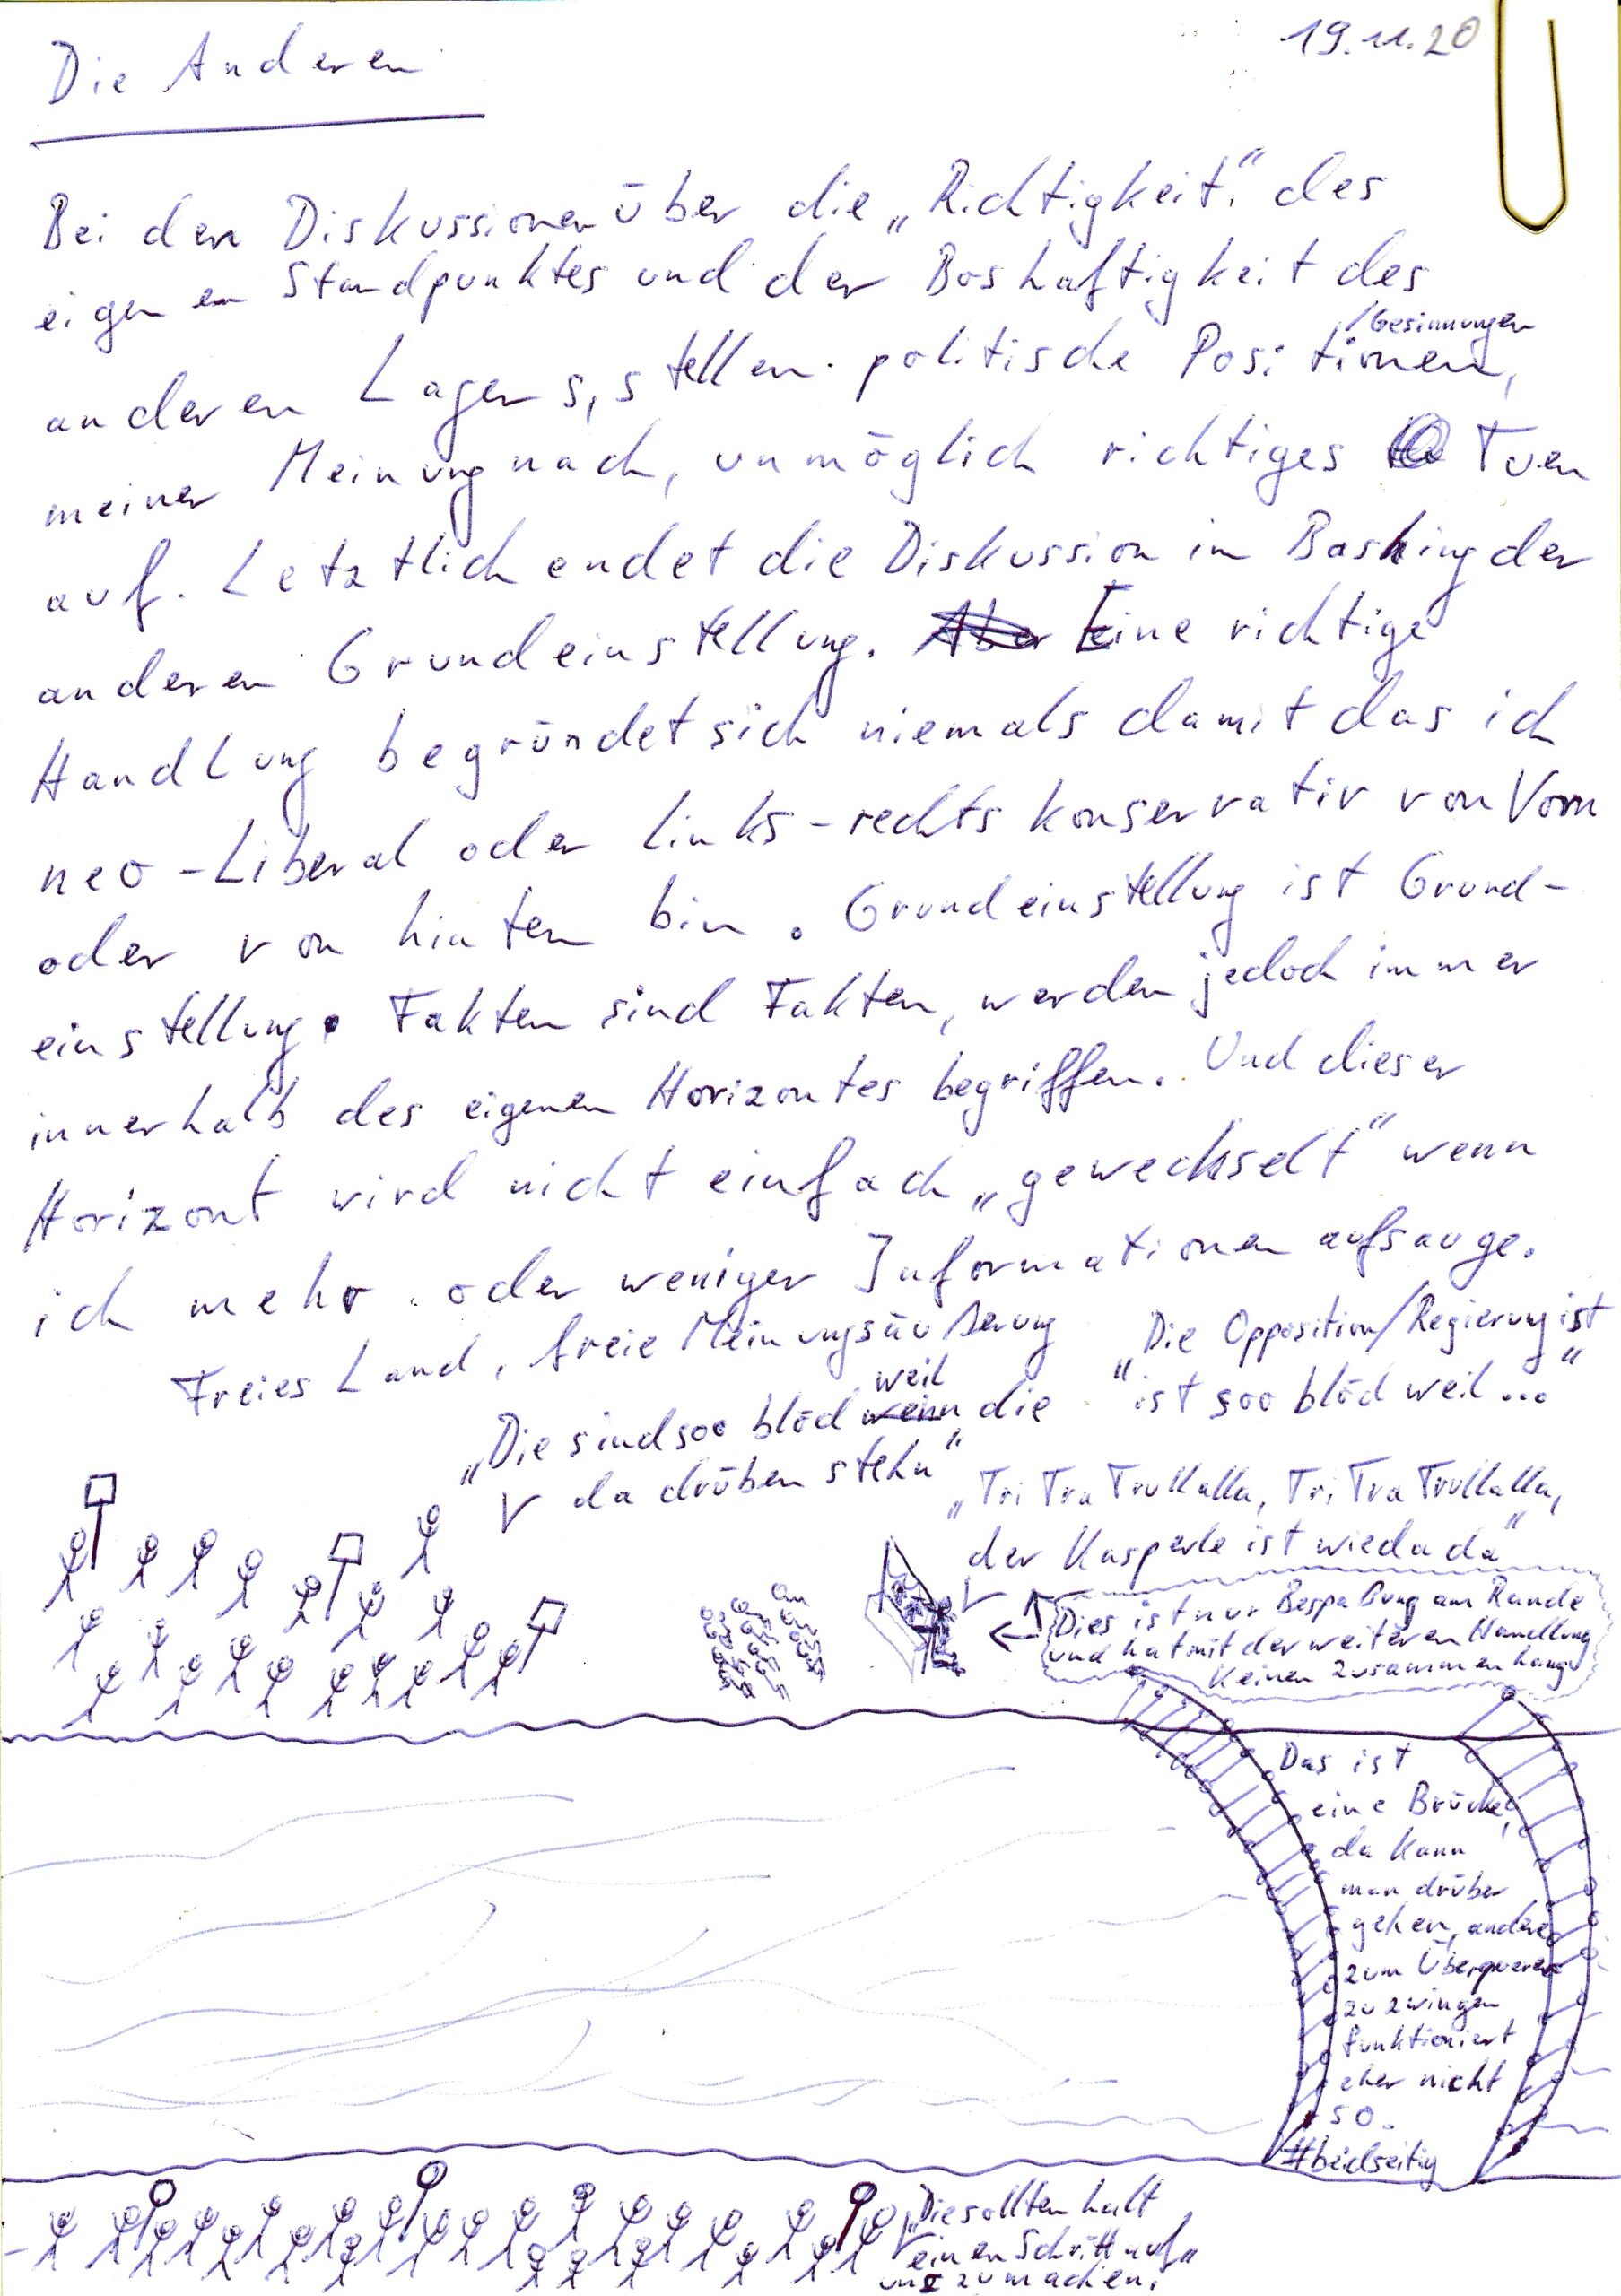 19.11.20
Die Anderen
Bei den Diskussionen über die „Richtigkeit" des
eigenen Standpunktes und der Boshaftigkeit des
anderen Lagers, stellen politische Positionen/Gesinnungen,
meiner Meinung nach, unmöglich richtiges Tuen
auf. Letztlich endet die Diskussion in Bashing der
anderen Grundeinstellung. Eine richtige
Handlung begründet sich niemals damit das ich
neo-Liberal oder links-rechts konservativ von Vorn
oder von hinten bin. Grundeinstellung ist Grund-
einstellung. Fakten sind Fakten, werden jedoch immer
innerhalb des eigenen Horizontes begriffen. Und dieser
Horizont wird nicht einfach „gewechselt" wenn
ich mehr oder weniger Informationen aufsauge.
Freies Land, freie Meinungsäußerung
„Die sind soo blöd weil die
da drüben stehn"
"Die Opposition/Regierung ist"
"ist soo blöd weil..."
„Tri Tra Trullalla, Tri Tra Trullalla,
der Kasperle ist wieda da"
Dies ist nur Bespaßung am Rande
und hat mit der weiteren Handlung
keinen Zusammenhang
Das ist
eine Brücke,
da kann
man drüber
gehen, andere
zum Überqueren
zu zwingen
funktioniert
eher nicht
so.
#beidseitig
„Die sollten halt
einen Schritt auf
uns zu machen."